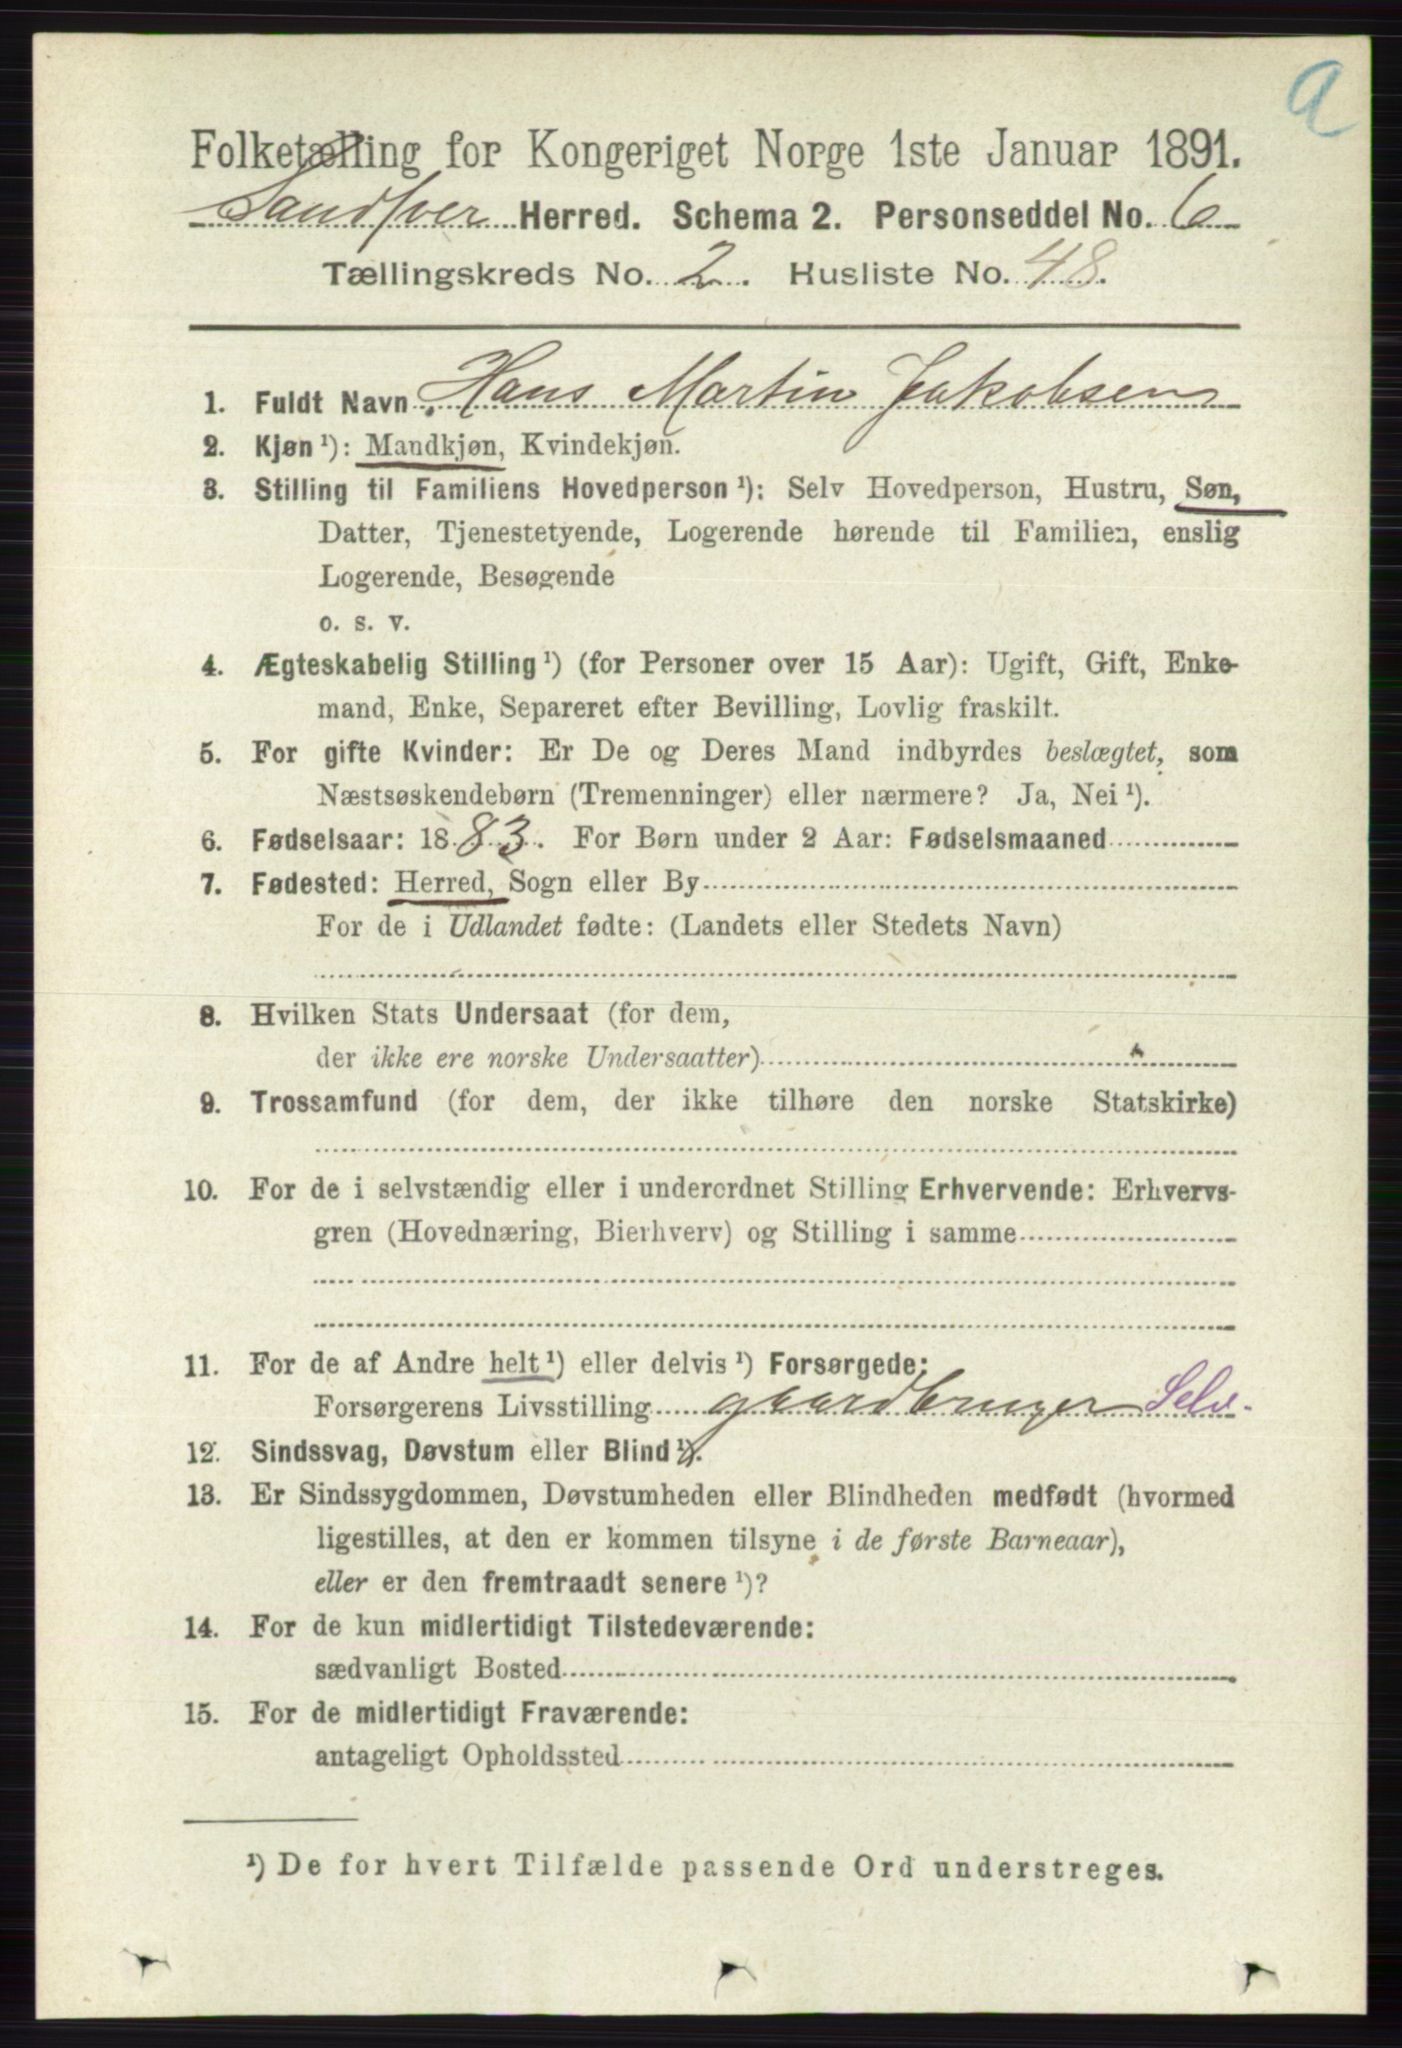 a
Folketælling for Kongeriget Norge 1ste Januar 1891.
Sandsver Herred. Schema 2. Personseddel No. 6
Tællingskreds No. 2. Husliste No. 48.
1. Fuldt Navn Hans Martin Jakobsen
2. Kjøn¹): Mandkjøn, Kvindekjøn.
3. Stilling til Familiens Hovedperson¹): Selv Hovedperson, Hustru, Søn,
Datter, Tjenestetyende, Logerende hørende til Familien, enslig
Logerende, Besøgende
o. s. v.
4. Ægteskabelig Stilling¹) (for Personer over 15 Aar): Ugift, Gift, Enke-
mand, Enke, Separeret efter Bevilling, Lovlig fraskilt.
5. For gifte Kvinder: Er De og Deres Mand indbyrdes beslægtet, som
Næstsøskendebørn (Tremenninger) eller nærmere? Ja, Nei¹).
6. Fødselsaar: 1883. For Børn under 2 Aar: Fødselsmaaned
7. Fødested: Herred, Sogn eller By
For de i Udlandet fødte: (Landets eller Stedets Navn)
8. Hvilken Stats Undersaat (for dem,
der ikke ere norske Undersaatter)
9. Trossamfund (for dem, der ikke tilhøre den norske Statskirke)
10. For de i selvstændig eller i underordnet Stilling Erhvervende: Erhvervs-
gren (Hovednæring, Bierhverv) og Stilling i samme
11. For de af Andre helt¹) eller delvis¹) Forsørgede:
Forsørgerens Livsstilling gaardbruger Selv.
12. Sindssvag, Døvstum eller Blind¹).
13. Er Sindssygdommen, Døvstumheden eller Blindheden medfødt (hvormed
ligestilles, at den er kommen tilsyne i de første Barneaar),
eller er den fremtraadt senere¹)?
14. For de kun midlertidigt Tilstedeværende:
sædvanligt Bosted
15. For de midlertidigt Fraværende:
antageligt Opholdssted
¹) De for hvert Tilfælde passende Ord understreges.